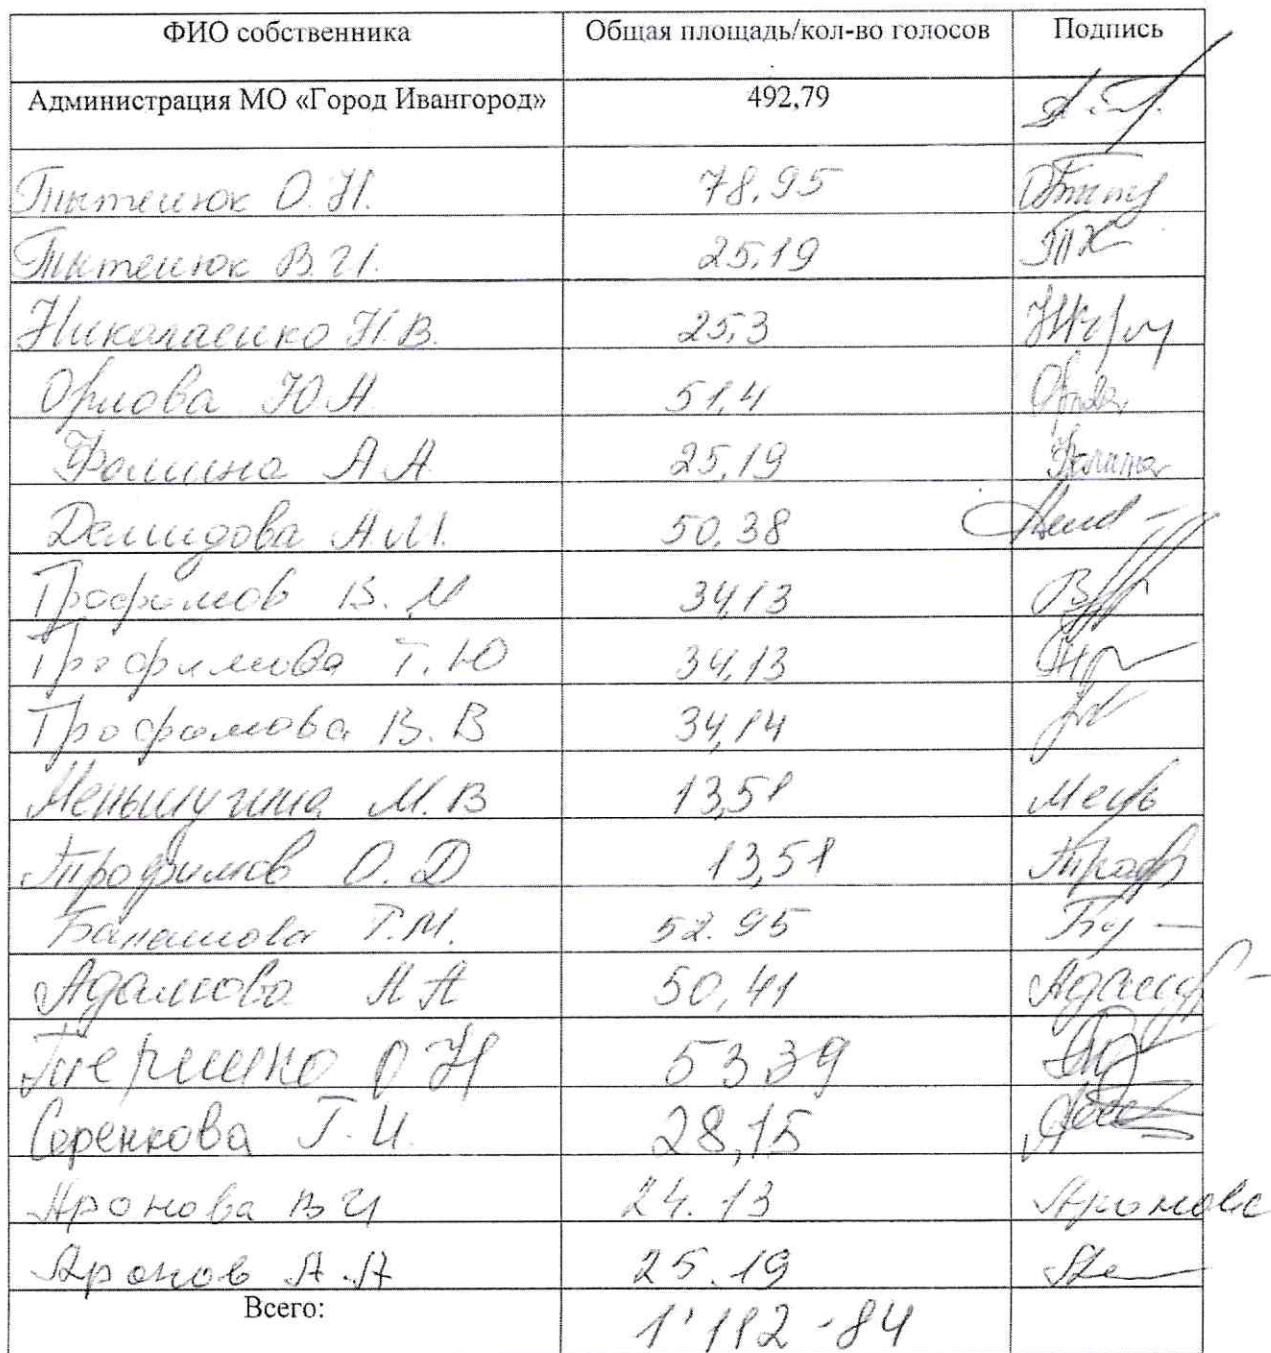 ФИО собственника Общая площадь/кол-во голосов Подпись
Администрация МО «Город Ивангород» 492,79
Тытенюк О.Н. 78,95
Тытенюк В.И. 25,19
Николаенко Н.В. 25,3
Орлова Ю.А 51,4
Фомина А.А. 25,19
Демидова А.М. 50,38
Трофимов В.М 34,13
Трофимова Т.Ю 34,13
Трофимова В.В 34,14
Меньшугина М.В 13,51
Трофимов О.Д 13,51
Балашова Т.М. 52.95
Адамкова А А 50,41
Терешко О Н 53 39
Серенкова Г.И. 28,15
Аронова В И 24.13 Аронова
Аронов А.А 25.19
Всего: 1'112-84